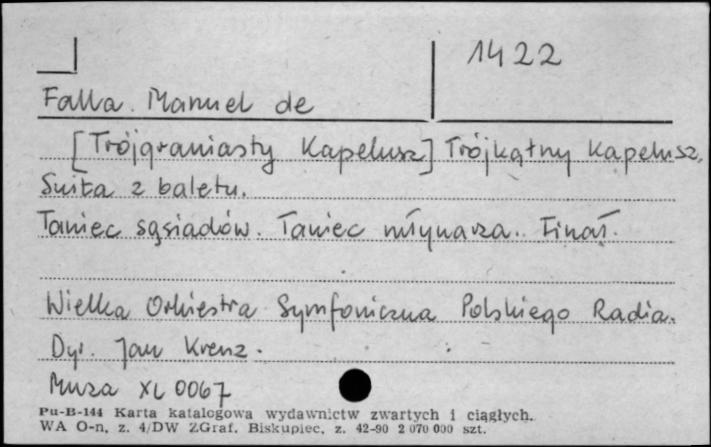 1422
Falla. Manuel de
[Trójgraniasty Kapelusz] Trójkątny Kapelusz.
Suita z baletu.
Taniec sąsiadów. Taniec młynarza. Finał.
Wielka Orkiestra Symfoniczna Polskiego Radia.
Dyr. Jan Krenz.
Muza XL 0067
Pu-B-144 Karta katalogowa wydawnictw zwartych i ciągłych.
WA O-n, z. 4/DW ZGraf. Biskupiec, z. 42-90 2 070 000 szt.